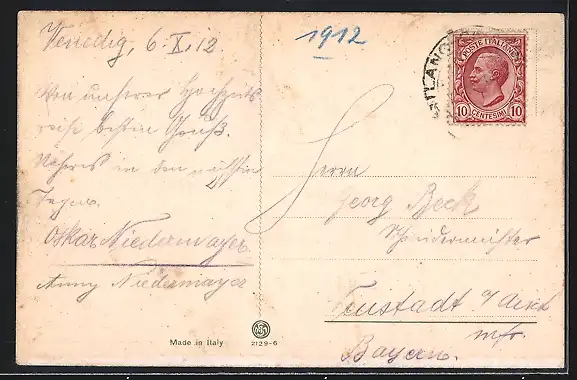 Venedig, 6.X.12
Von unserer Hochzeits
reise besten Gruß.
Näheres in den nächsten
Tagen.
Oskar Niedermayer
Anny Niedermayer
Made in Italy
2129-6
1912
POSTE ITALIANE
10 CENTESIMI 10
Herrn
Georg Beck
Schneidermeister
Neustadt a/Aisch
Mfr.
Bayern.